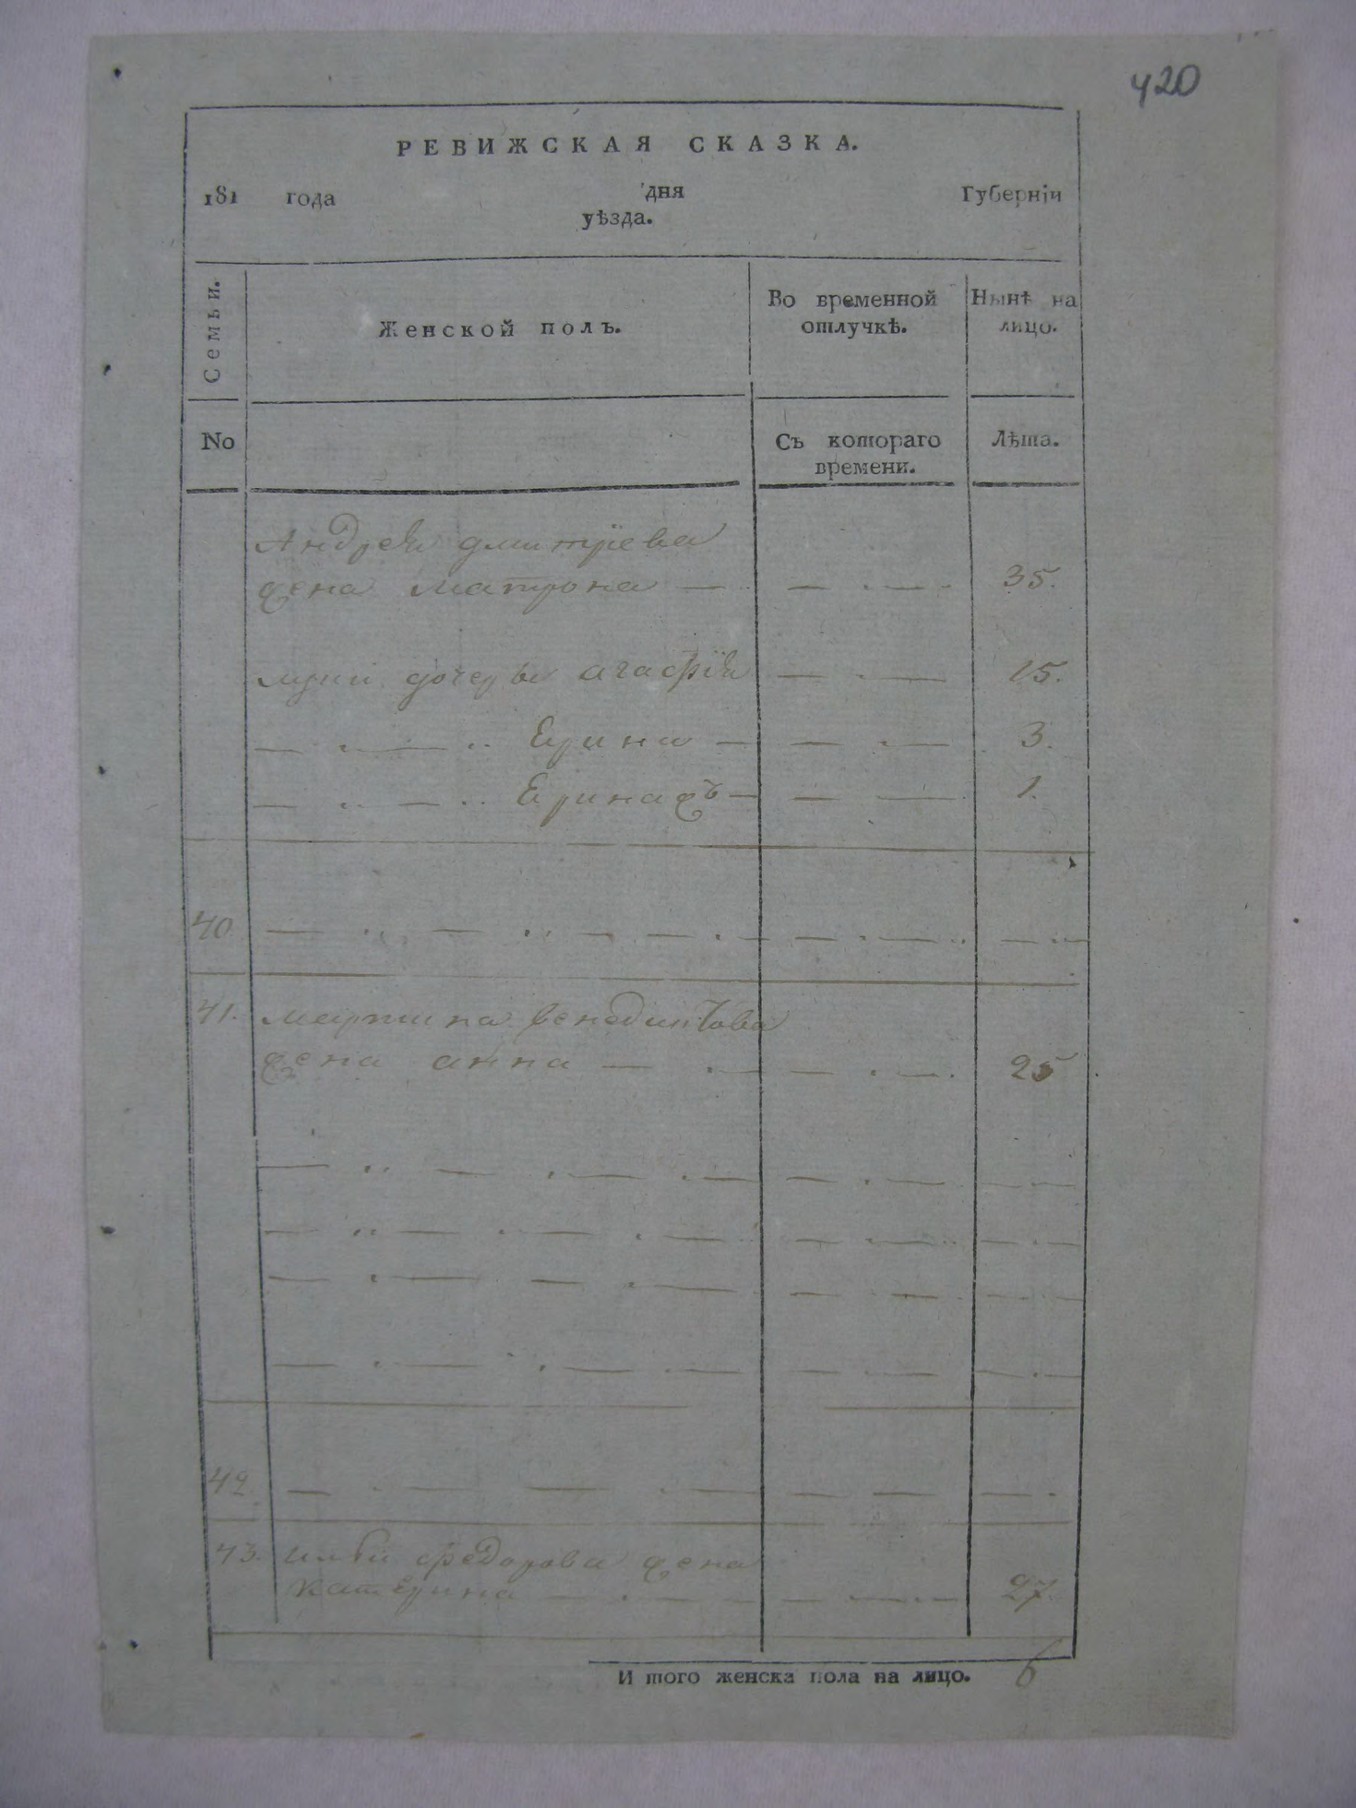 420
РЕВИЖСКАЯ СКАЗКА.
181 года дня Губерніи
уѣзда.
Семьи. Женской полъ. Во временной отлучкѣ. Нынѣ на лицо.
No Съ котораго времени. Лѣта.
Андрея дмитрїева
жена матрона — — . — . 35.
дочерьи агафїя — . — 15.
— . — .. Ерина — — . — 3.
— .. — .. Ерина жъ — — — 1.
40. — .. — .. — — . — — . — .. — .. —
41. мартина венедиктова
жена анна — . — — . — . 25
— .. — . — . — — . — — —
— .. — . — . — — . — .. — . —
— . — — . — — . — — . —
— . — . — . — — . — — . —
42. — . — — . — — — — .
43. ильи федорова жена
катерина — . — — — . — . — 27.
И того женска пола на лицо. 6